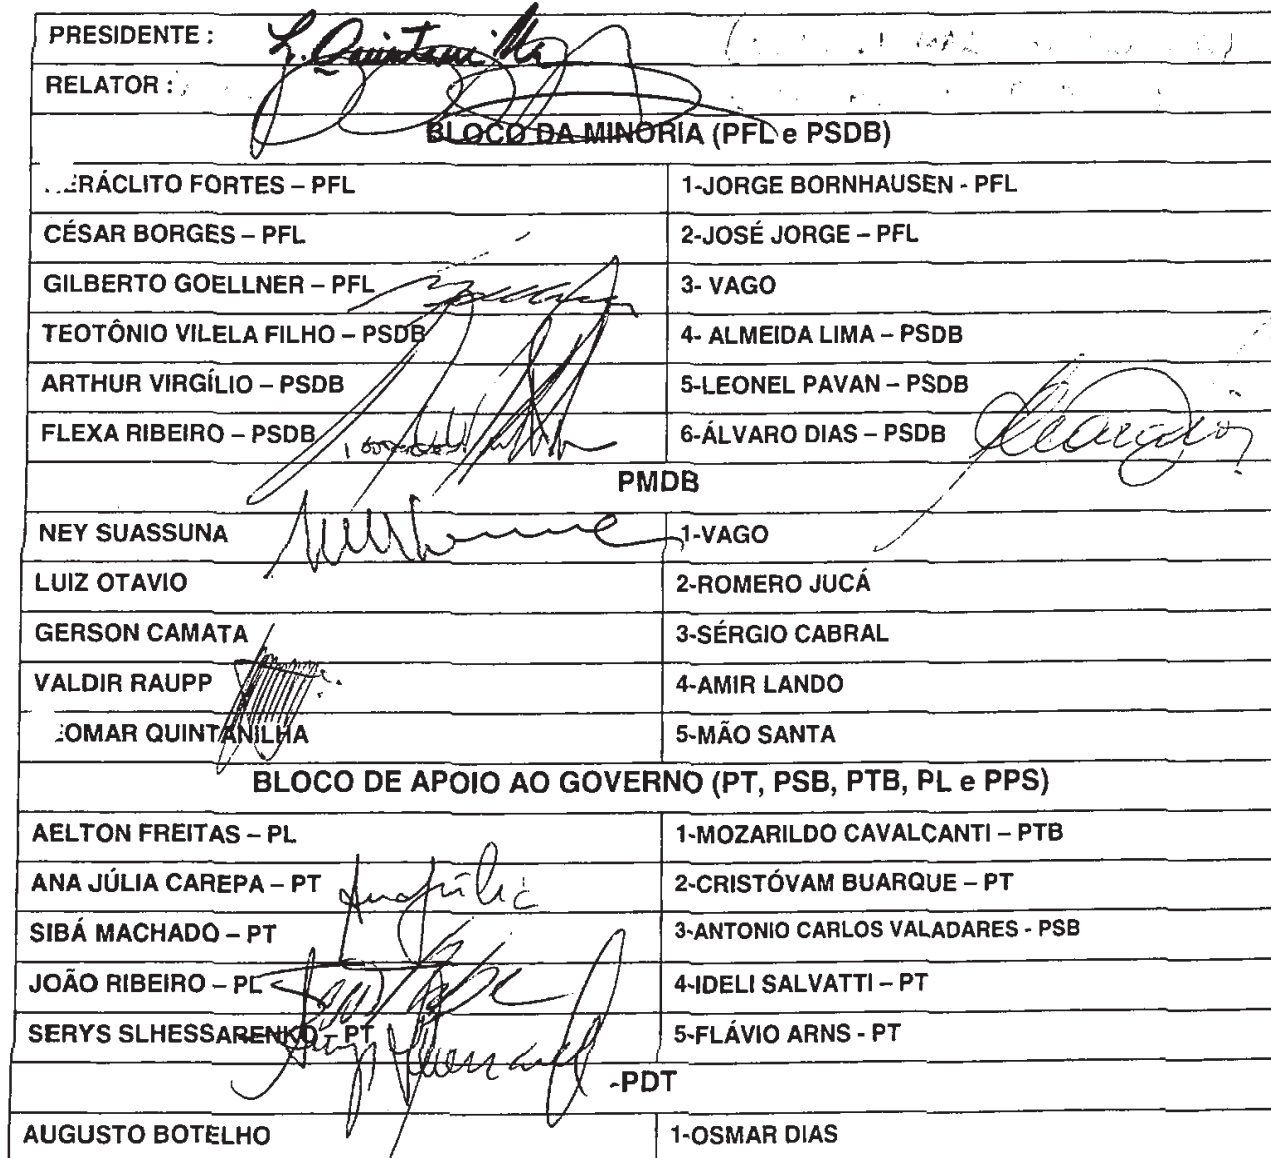 PRESIDENTE : L. Quintanilha
RELATOR :
BLOCO DA MINORIA (PFL e PSDB)
ERÁCLITO FORTES – PFL 1-JORGE BORNHAUSEN - PFL
CÉSAR BORGES – PFL 2-JOSÉ JORGE – PFL
GILBERTO GOELLNER – PFL 3- VAGO
TEOTÔNIO VILELA FILHO – PSDB 4- ALMEIDA LIMA – PSDB
ARTHUR VIRGÍLIO – PSDB 5-LEONEL PAVAN – PSDB
FLEXA RIBEIRO – PSDB 6-ÁLVARO DIAS – PSDB
PMDB
NEY SUASSUNA 1-VAGO
LUIZ OTAVIO 2-ROMERO JUCÁ
GERSON CAMATA 3-SÉRGIO CABRAL
VALDIR RAUPP 4-AMIR LANDO
OMAR QUINTANILHA 5-MÃO SANTA
BLOCO DE APOIO AO GOVERNO (PT, PSB, PTB, PL e PPS)
AELTON FREITAS – PL 1-MOZARILDO CAVALCANTI – PTB
ANA JÚLIA CAREPA – PT Ana Júlia 2-CRISTÓVAM BUARQUE – PT
SIBÁ MACHADO – PT 3-ANTONIO CARLOS VALADARES - PSB
JOÃO RIBEIRO – PL 4-IDELI SALVATTI – PT
SERYS SLHESSARENKO – PT 5-FLÁVIO ARNS - PT
-PDT
AUGUSTO BOTELHO 1-OSMAR DIAS